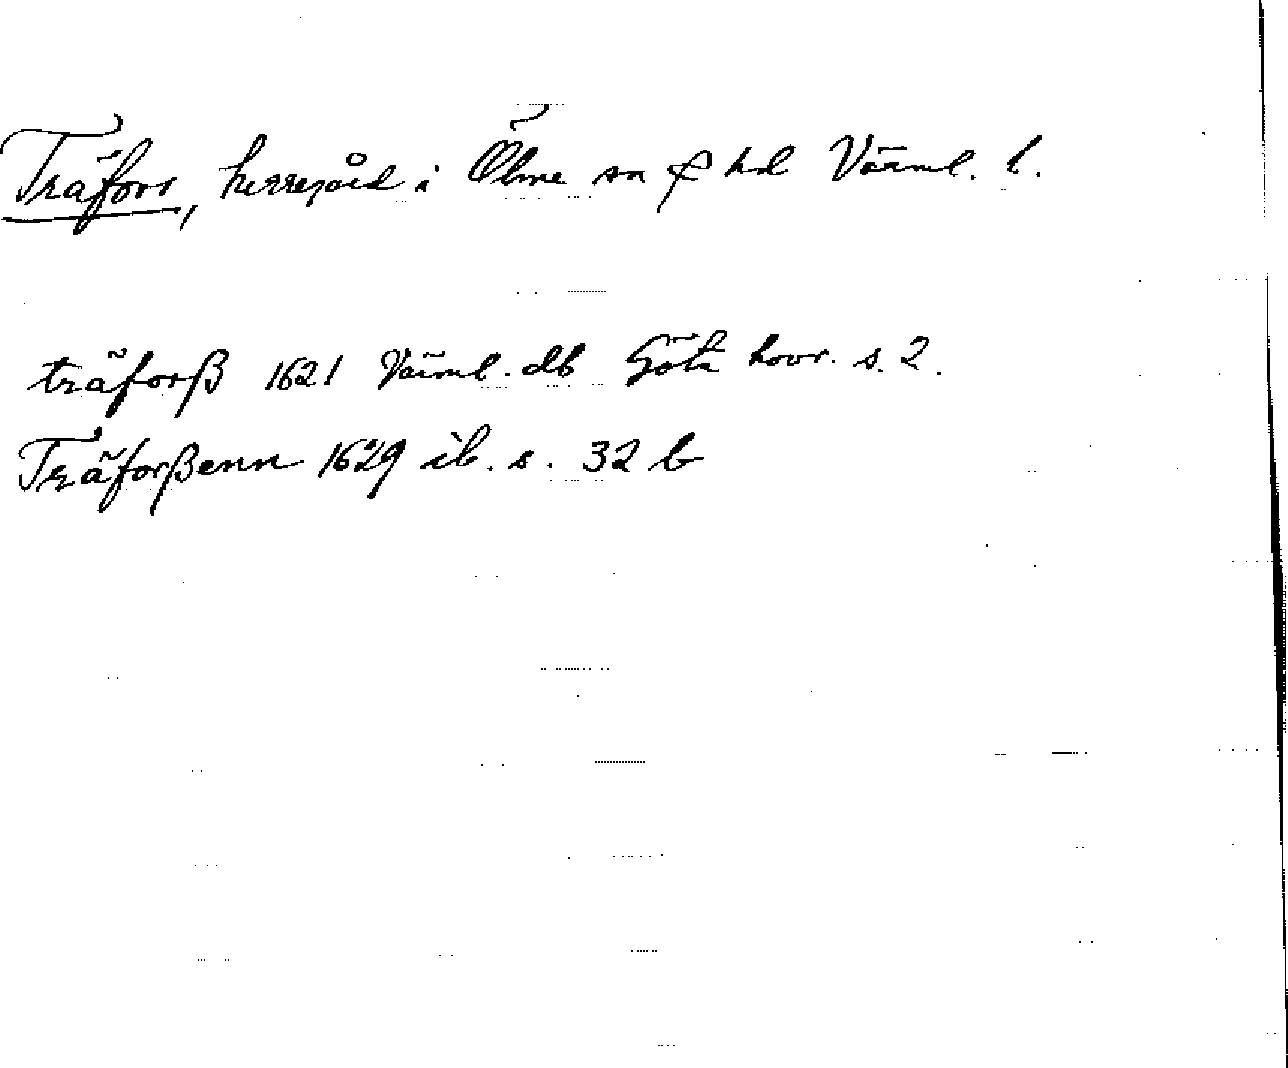 Träfors, herregård i Ölme sn & hd Värml. l.
träforß 1621 Värml. db Göta hovr. s. 2.
Träforßenn 1629 ib. s. 32 b